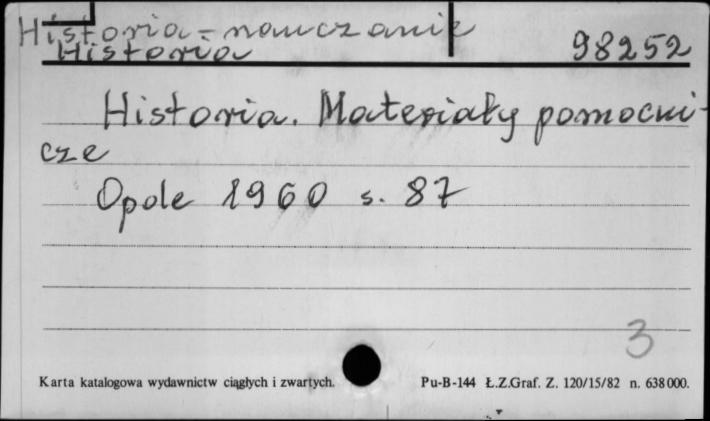 Historia - nauczanie
Historia 98252
Historia. Materiały pomocni-
cze
Opole 1960 s. 87
3
Karta katalogowa wydawnictw ciągłych i zwartych. Pu-B-144 Ł.Z.Graf. Z. 120/15/82 n. 638000.